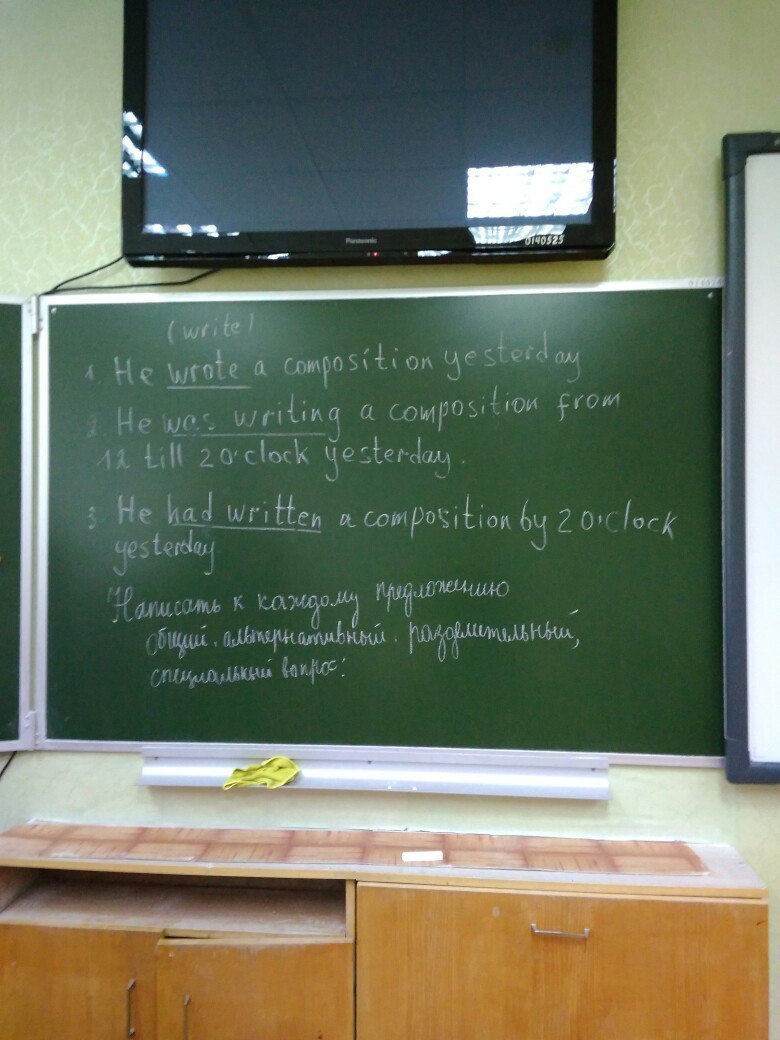 Panasonic
0140525
(write)
1. He wrote a composition yesterday
2 He was writing a composition from
12 till 2 o'clock yesterday.
3 He had written a composition by 2 o'clock
yesterday
Написать к каждому предложению
общий, альтернативный, разделительный,
специальный вопрос: